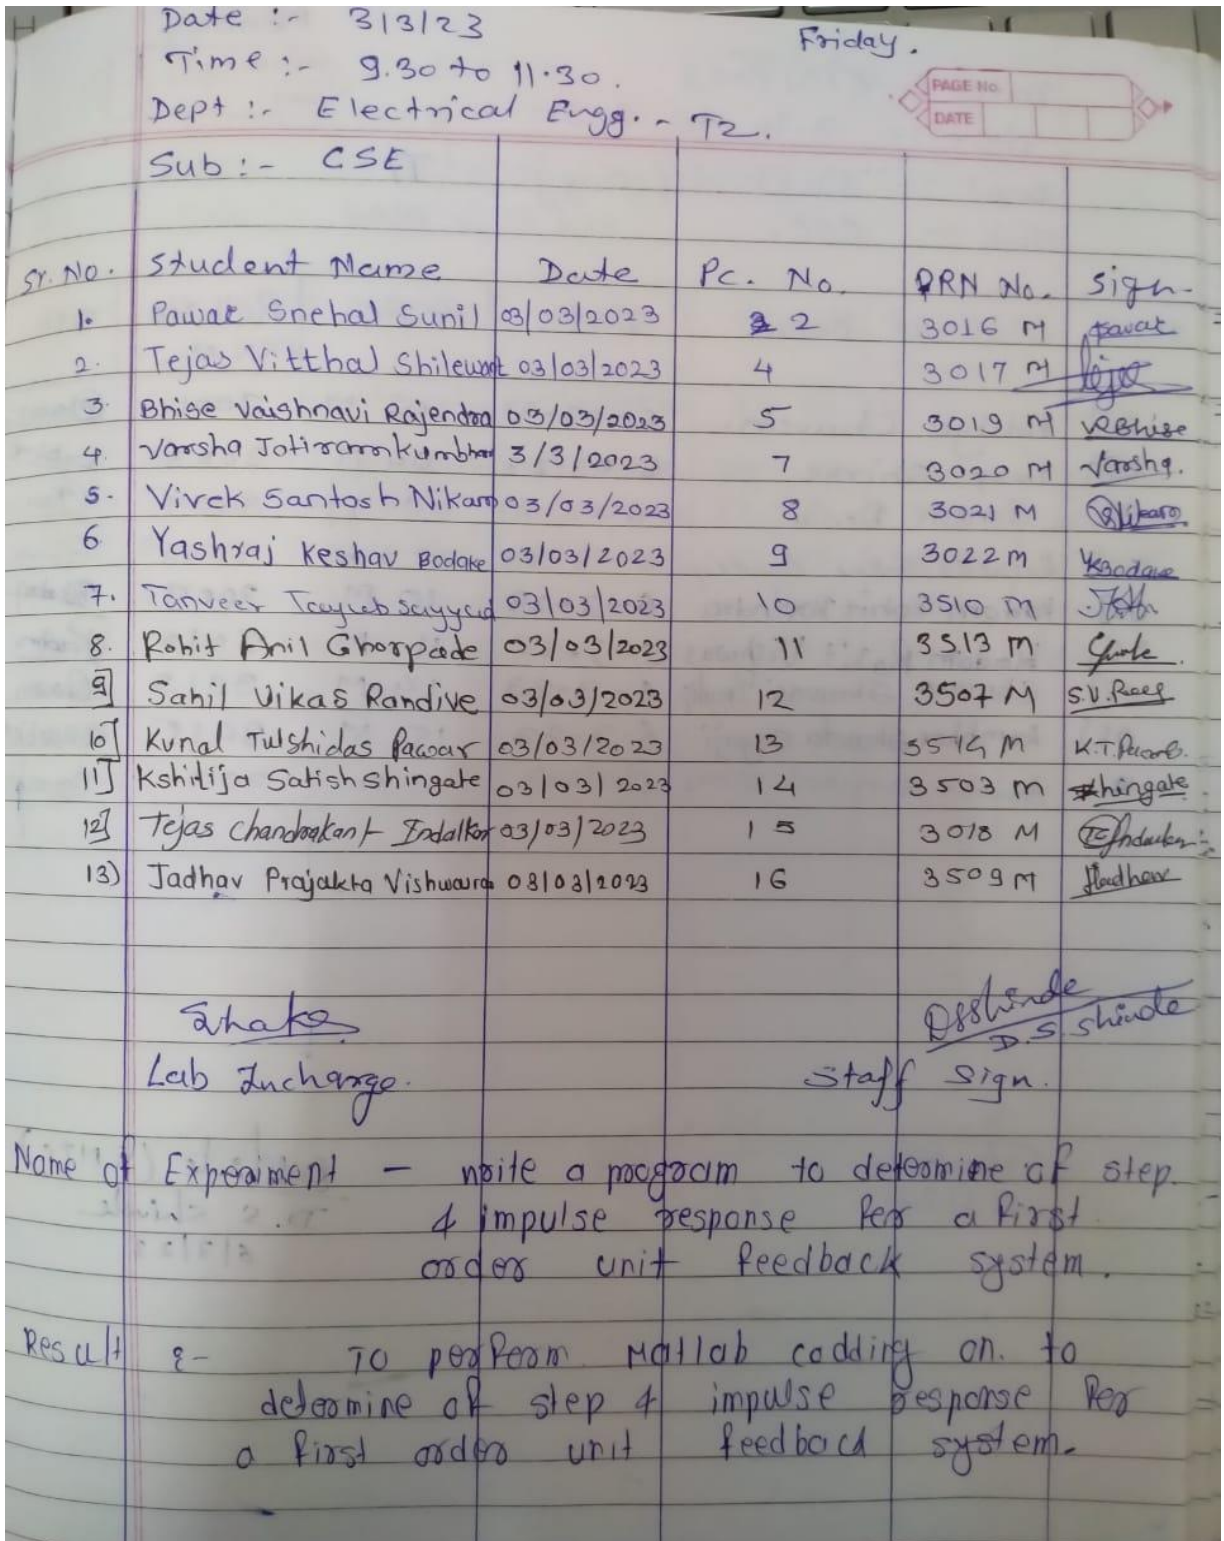 Date :- 3/3/23 Friday.
Time :- 9.30 to 11.30.
PAGE No.
Dept :- Electrical Engg. - T2.
DATE
Sub :- CSE
Sr. No. Student Name Date Pc. No. PRN No. Sign.
1. Pawar Snehal Sunil 03/03/2023 2 3016 M Pawar
2. Tejas Vitthal 03/03/2023 4 3017 M Tejas
3. Bhise Vaishnavi Rajendra 03/03/2023 5 3019 M VRBhise
4. Varsha Jotiram Kumbhar 3/3/2023 7 3020 M Varsha.
5. Vivek Santosh Nikam 03/03/2023 8 3021 M Nikam
6 Yashraj Keshav Bodake 03/03/2023 9 3022 M YKBodake
7. Tanveer Tayyab Sayyad 03/03/2023 10 3510 M
8. Rohit Anil Ghorpade 03/03/2023 11 3513 M
9] Sahil Vikas Randive 03/03/2023 12 3507 M S.V.
10] Kunal Tulshidas Pawar 03/03/2023 13 3514 M K.T.
11] Kshitija Satish Shingate 03/03/2023 14 3503 M Shingate
12] Tejas Chandrakant Indalkar 03/03/2023 15 3018 M
13) Jadhav Prajakta 03/03/2023 16 3509 M Jadhav
DSShinde
D.S. Shinde
Lab Incharge. Staff Sign.
Name of Experiment - write a program to determine of step
& impulse response for a first
order unit feedback system.
Result :- To perform Matlab codding on. to
determine of step & impulse response for
a first order unit feedback system.